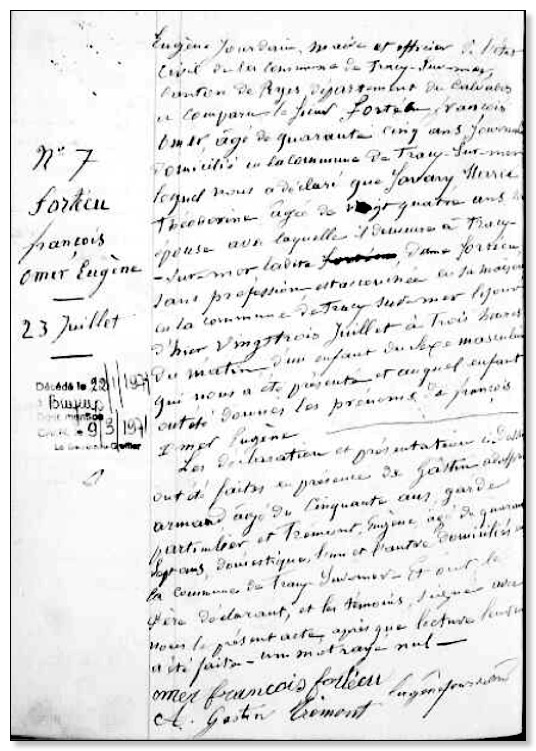 N° 7
fortieu
françois
omer Eugène
23 Juillet
Décédé le 22/1/197
à
Dont mention
-9/3/197
Le Greffier
Eugène Jourdain, maire et officier de l'état
Civil de la commune de Tracy-Sur-mer,
Canton de Ryes, département du Calvados
a comparu le sieur fortieu, françois
Omer, âgé de quarante cinq ans, Journalier
domicilié en la commune de Tracy-Sur-mer
lequel nous a déclaré que Marie
âgée de vingt quatre ans
épouse avec laquelle il demeure à Tracy
-Sur-mer ladite dame fortieu
sans profession est accouchée en sa maison
en la commune de Tracy sur-mer le jour
d'hier vingt trois Juillet à trois heures
du matin d'un enfant du sexe masculin
qui nous a été présenté et auquel enfant
ont été donnés les prénoms de françois
Omer Eugène
Les déclaration et présentation ci-dessus
ont été faites en présence de Gastin
armand âgé de Cinquante ans, garde
particulier, et Trémont, Eugène, âgé de quarante
Sept ans, domestique, l'un et l'autre domiciliés en
la commune de Tracy-Sur-mer. Et ont le
père déclarant, et les témoins, signé avec
nous le présent acte, après que lecture leur en
a été faite - un mot rayé nul -
omer francois fortieu
A. Gastin Trémont Eugène Jourdain